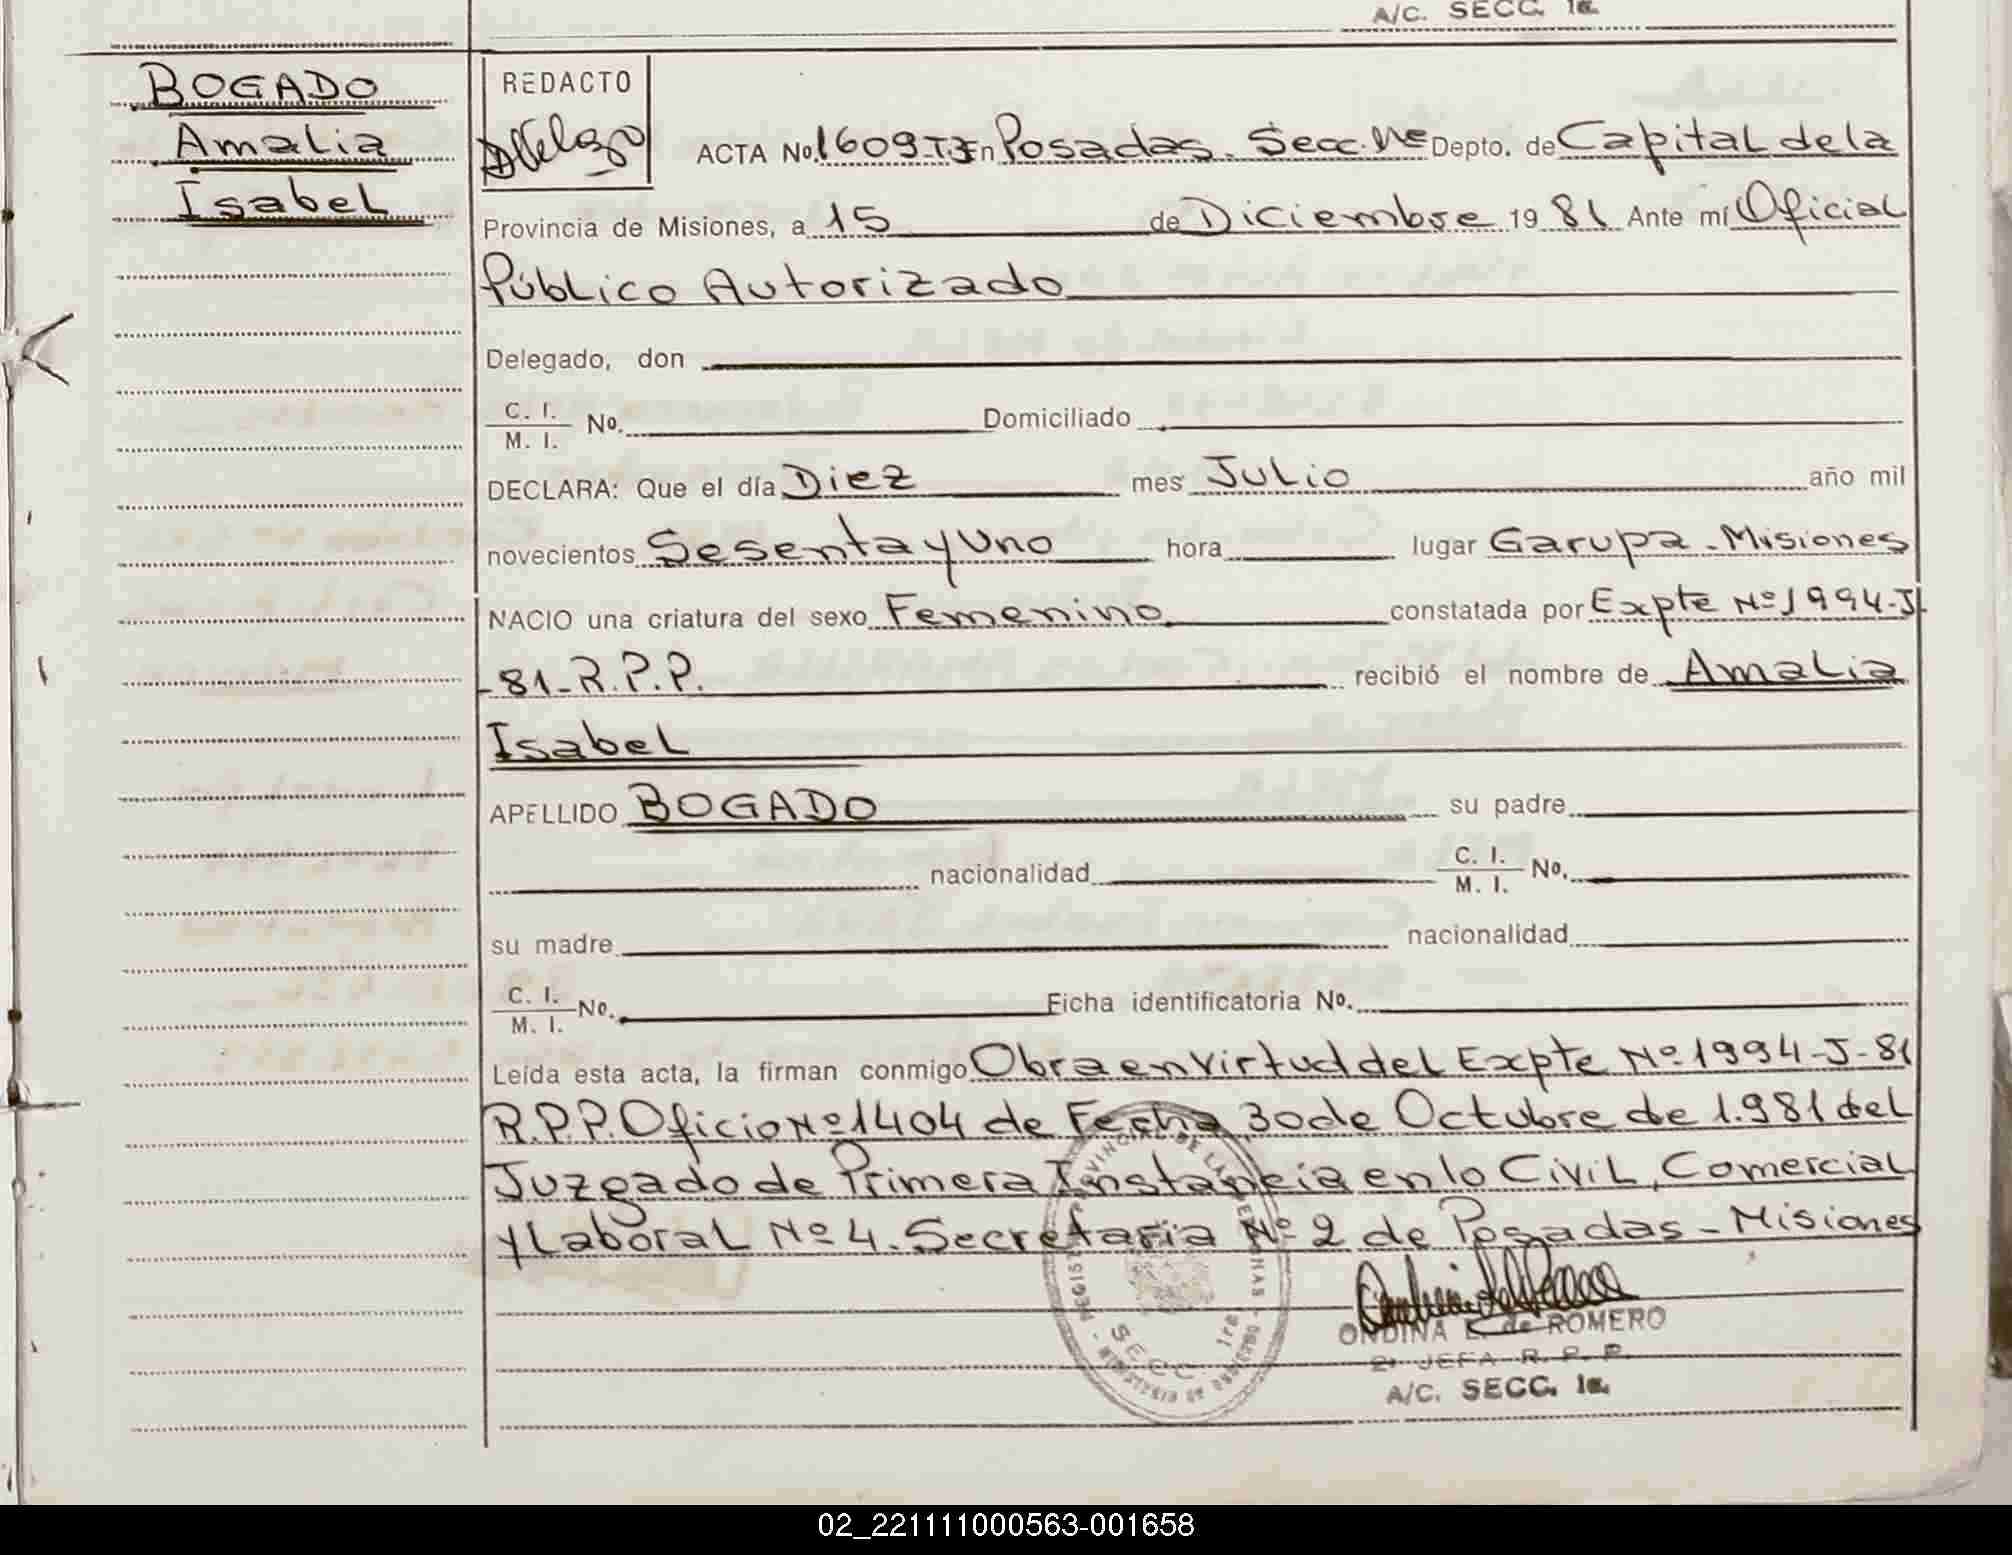 A/C. SECC. 1a.
BOGADO
Amalia
Isabel
REDACTO
ACTA No. 1609-T3 En Posadas. Secc. 1ra Depto. de Capital de la
Provincia de Misiones, a 15 de Diciembre 1981 Ante mí Oficial
Público Autorizado
Delegado, don
C. I.
M. I. No. Domiciliado
DECLARA: Que el día Diez mes Julio año mil
novecientos Sesenta y Uno hora lugar Garupa - Misiones
NACIO una criatura del sexo Femenino constatada por Expte Nº 1994-J-
-81-R.P.P. recibió el nombre de Amalia
Isabel
APELLIDO BOGADO su padre
nacionalidad C. I.
M. I. No.
su madre nacionalidad
C. I.
M. I. No. Ficha identificatoria No.
Leída esta acta, la firman conmigo Obra en virtud del Expte Nº 1994-J-81
R.P.P. Oficio Nº 1404 de Fecha 30 de Octubre de 1.981 del
Juzgado de Primera Instancia en lo Civil, Comercial
y Laboral Nº 4. Secretaria Nº 2 de Posadas - Misiones
REGISTRO PROVINCIAL DE LAS PERSONAS - MINISTERIO DE GOBIERNO -
SECC. 1ra.
ONDINA E. de ROMERO
2ª JEFA R. P. P.
A/C. SECC. 1a.
02_221111000563-001658